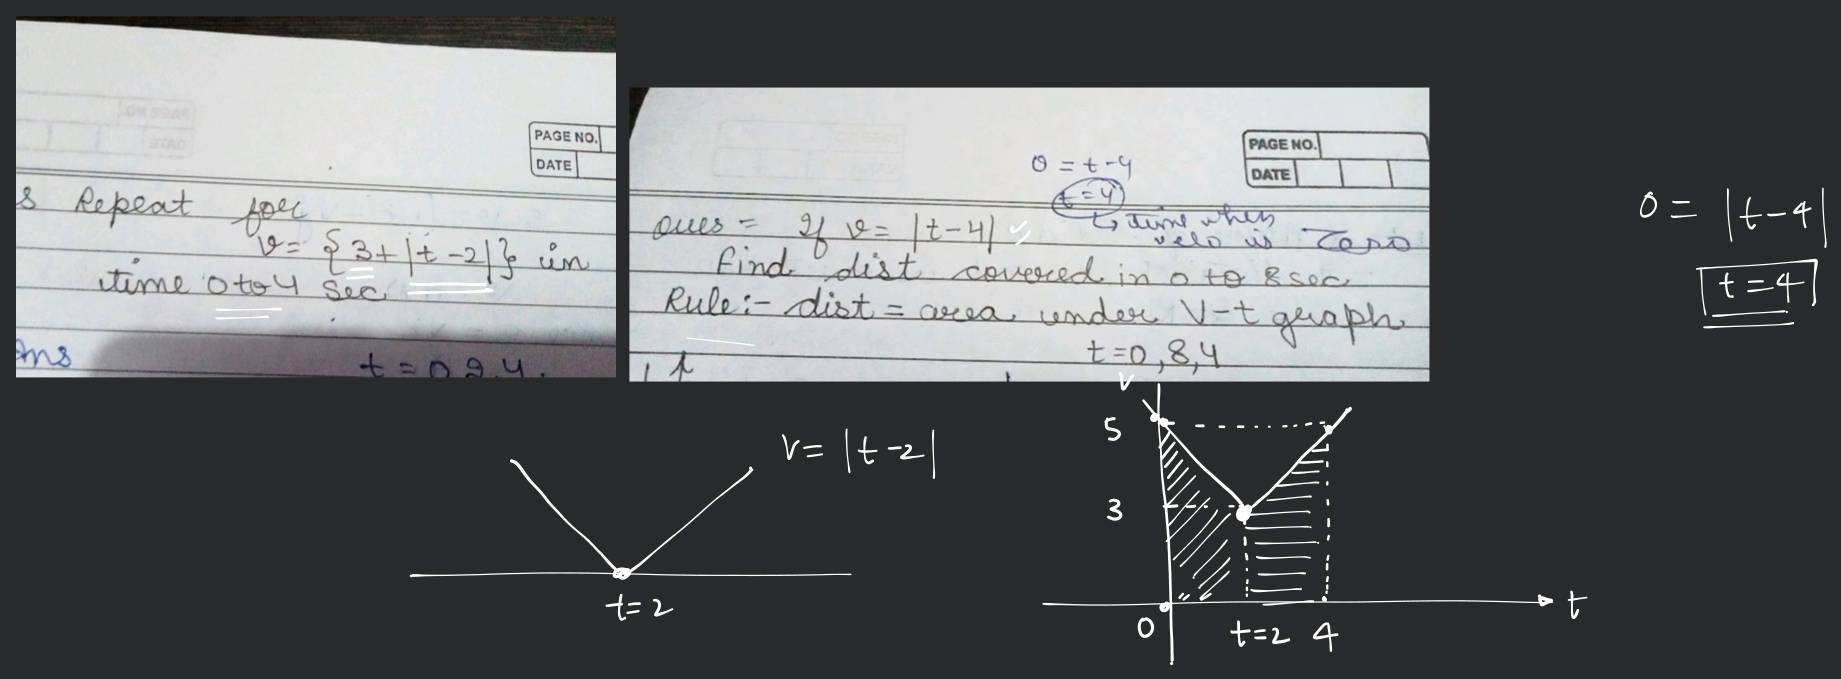 PAGE NO.
DATE
s Repeat for
v = {3+|t-2|} in
time 0 to 4 sec
Ans t = 0 2 4.
PAGE NO.
DATE
0 = t-4
t=4
↳ time when
velo is Zero
Ques = If v = |t-4|
find dist covered in 0 to 8 sec
Rule:- dist = area under V-t graph
t=0,8,4
0 = |t-4|
t=4
v = |t-2|
t=2
v
5
3
0
t=2 4
t